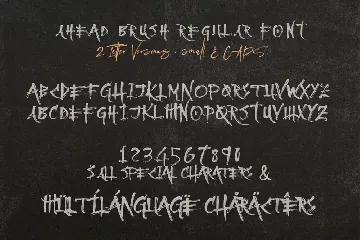 AHEAD BRUSH REGULAR FONT
2 Letter Versions - small & CAPS
ABCDEFGHIJKLMNOPQRSTUVWXYZ
ABCDEFGHIJKLMNOPQRSTUVWXYZ
1234567890
& ALL SPECIAL CHARATERS &
MULTILÁNGUAGE CHÄRÄCTÊRS